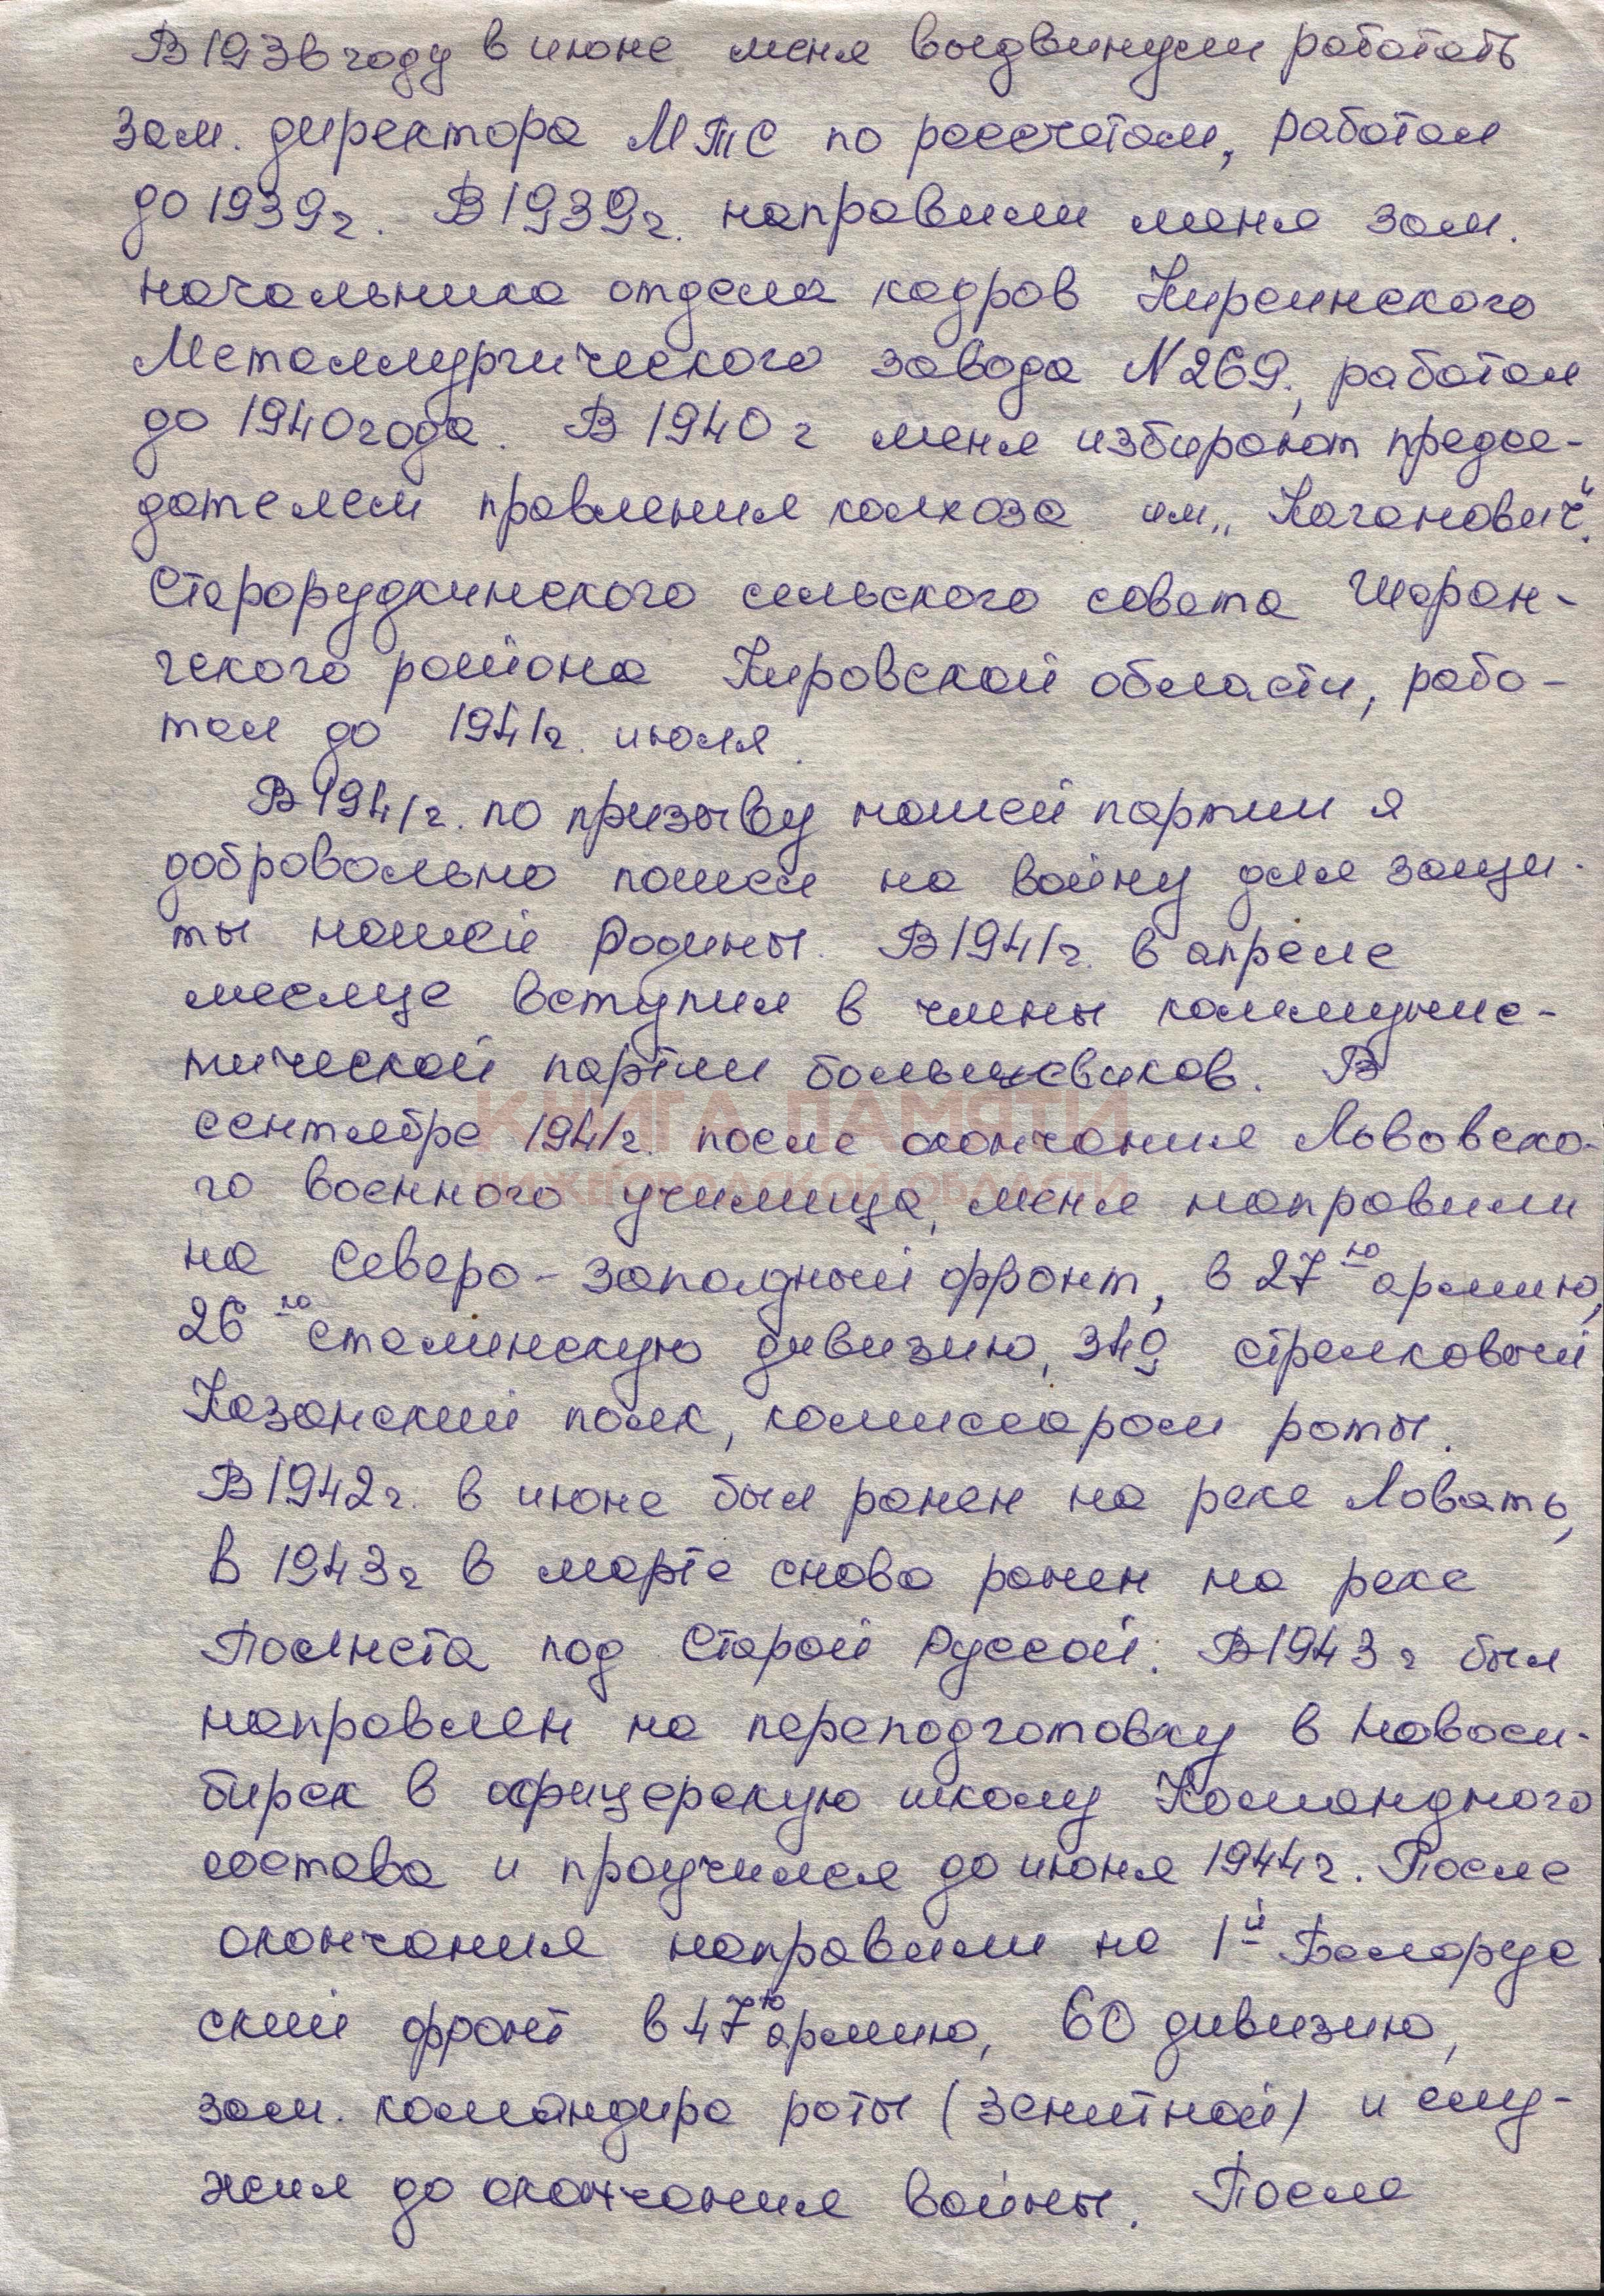 В 1936 году в июне меня выдвинули работать
зам. директора МТС по рассчетам, работал
до 1939г. В 1939г. направили меня зам.
начальника отдела кадров Кирсинского
Металлургического завода N 269, работал
до 1940 года. В 1940 г меня избирают предсе-
дателем правления колхоза им „Каганович".
Старорудкинского сельского совета Шаран-
гского района Кировской области, рабо-
тал до 1941г. июля.
В 1941г. по призыву нашей партии я
добровольно пошел на войну для защи-
ты нашей Родины. В 1941г. в апреле
месяце вступил в члены коммунис-
тической партии большевиков. В
сентябре 1941г. после окончания Львовско-
го военного училища, меня направили
на Северо-западный фронт, в 27ю армию,
26ю сталинскую дивизию, 349 стрелковый
Казанский полк, комиссаром роты.
В 1942г. в июне был ранен на реке Ловать,
В 1943г в марте снова ранен на реке
Полнста под Старой Руссой. В 1943 г был
направлен на переподготовку в Новоси-
бирск в офицерскую школу Командного
состава и проучился до июня 1944г. После
окончания направили на 1й Белорус
ский фронт в 47ю армию, 60 дивизию,
зам. командира роты (зенитной) и слу-
жил до окончания войны. После
КНИГА ПАМЯТИ
НИЖЕГОРОДСКОЙ ОБЛАСТИ